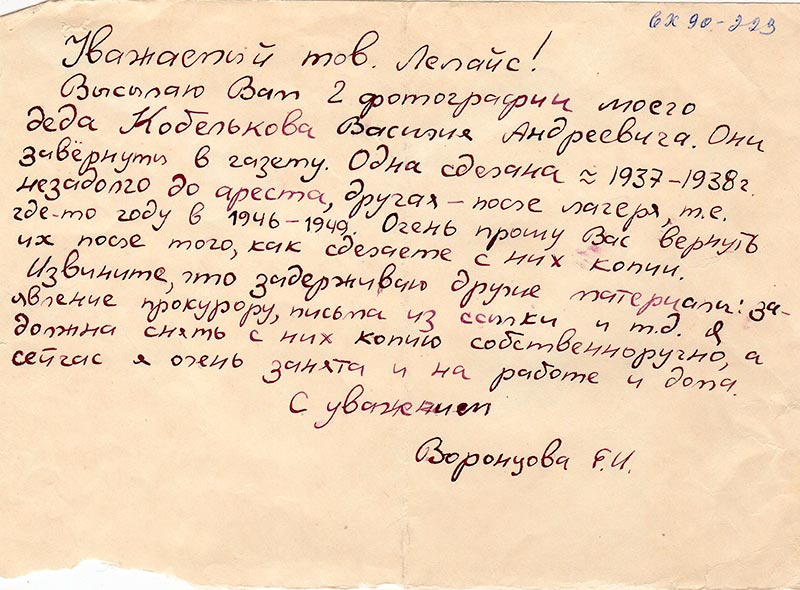 вх 90-223
Уважаемый тов. Лелайс!
Высылаю Вам 2 фотографии моего
деда Кобелькова Василия Андреевича. Они
завёрнуты в газету. Одна сделана ≈ 1937-1938 г.
незадолго до ареста, другая - после лагеря, т.е.
где-то году в 1946-1949. Очень прошу Вас вернуть
их после того, как сделаете с них копии.
Извините, что задерживаю другие материалы: за-
явление прокурору, письма из ссылки и т.д. Я
должна снять с них копию собственноручно, а
сейчас я очень занята и на работе и дома.
С уважением
Воронцова Г.И.